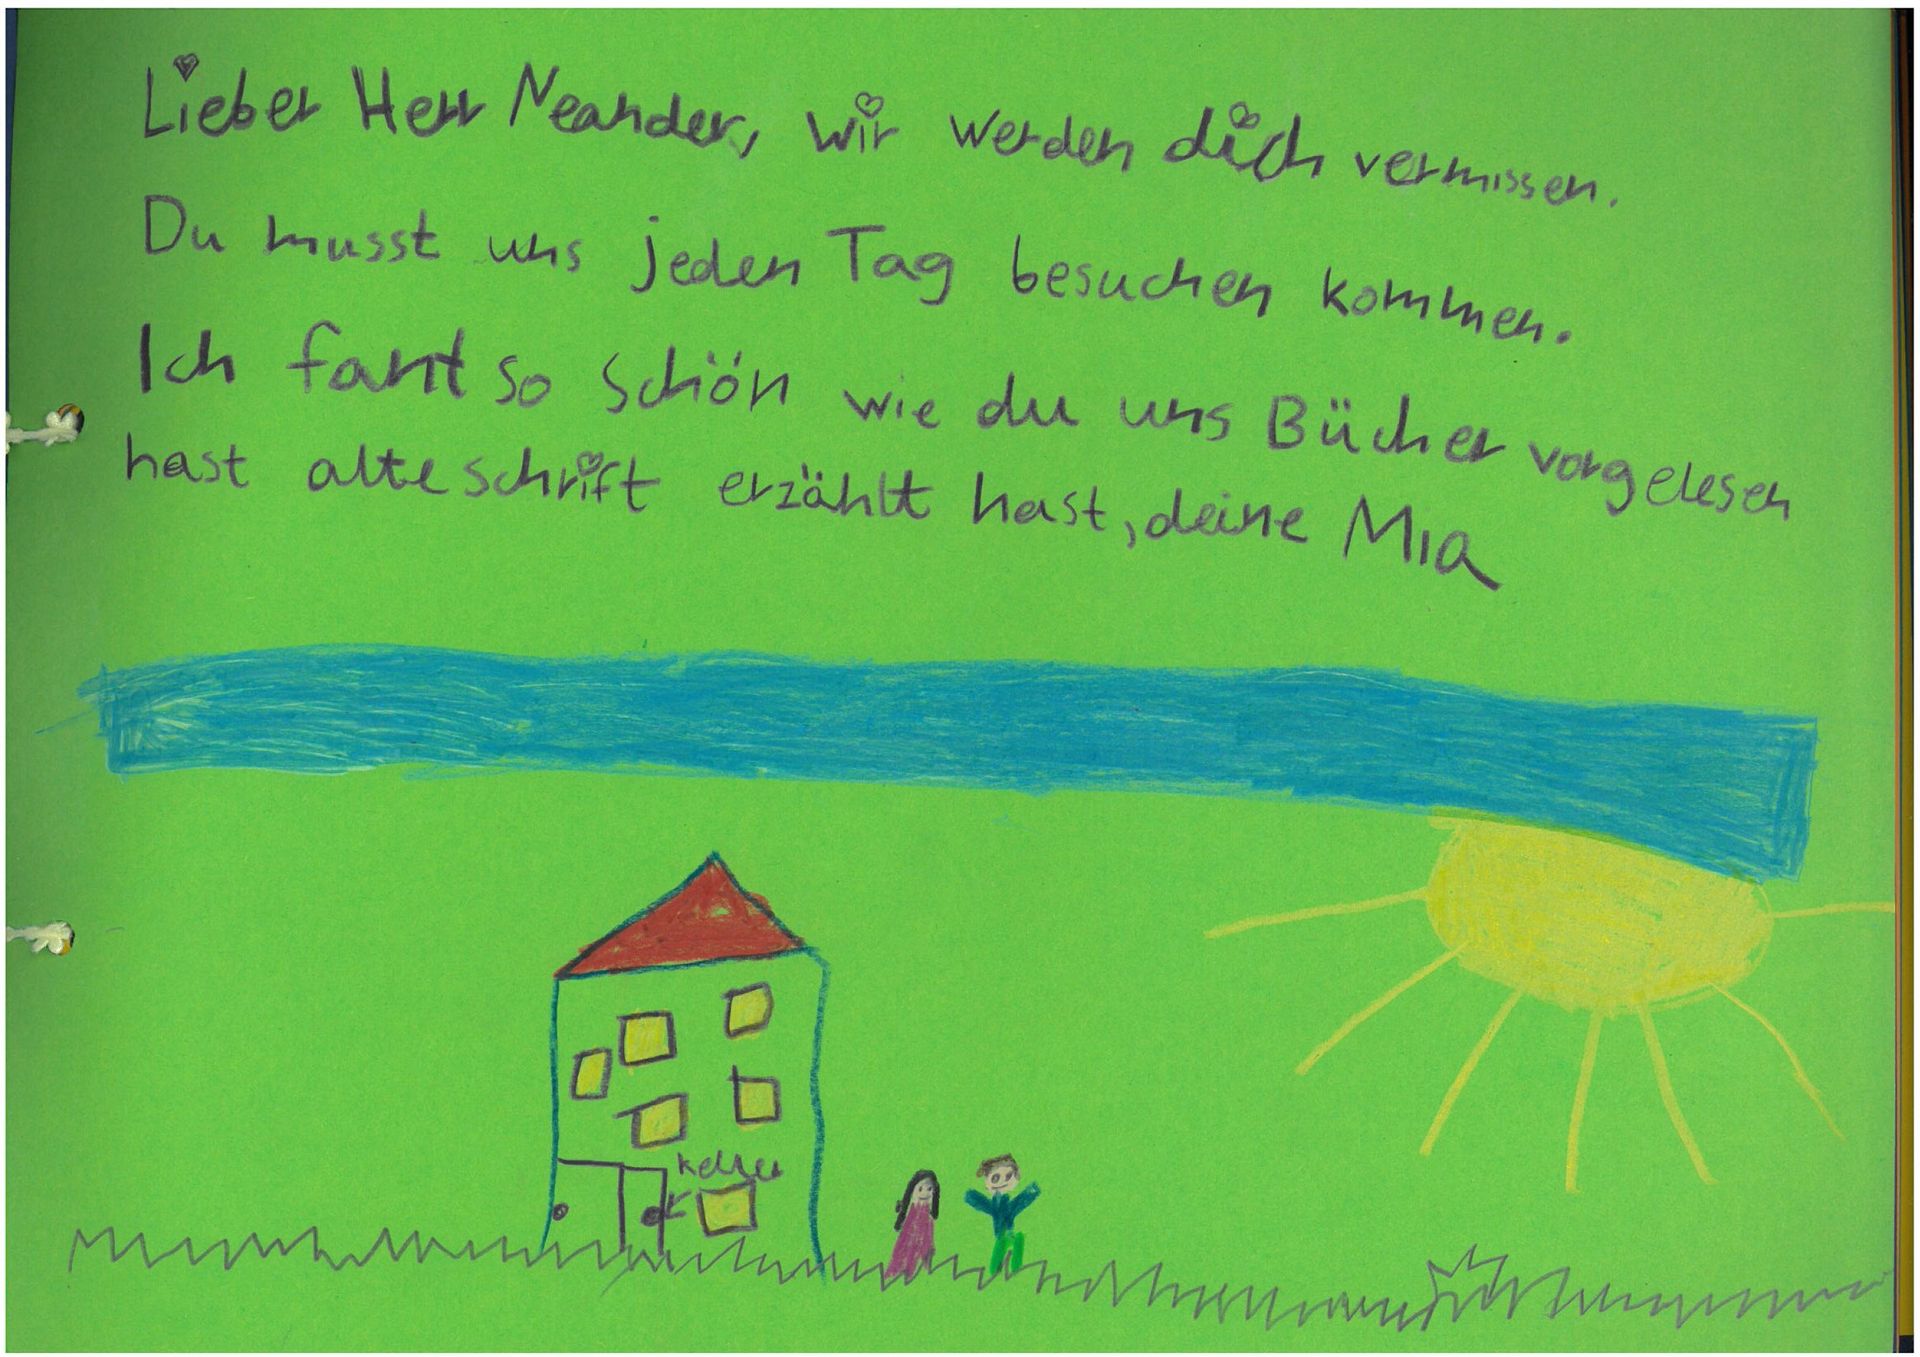 Lieber Herr Neander, wir werden dich vermissen.
Du musst uns jeden Tag besuchen kommen.
Ich fant so schön wie du uns Bücher vorgelesen
hast alte schrift erzählt hast, deine Mia